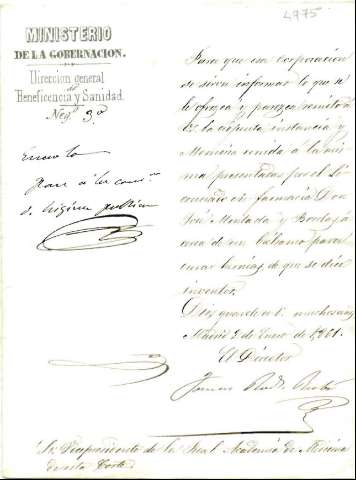 4975
MINISTERIO
DE LA GOBERNACION.
Direccion general
de
Beneficencia y Sanidad.
Neg.º 3º
Para que esa Corporacion
se sirva informar lo que se
le ofrezca y parezca remito á
la adjunta instancia y
Memoria unida á la mis
ma presentadas por el Li
cenciado en farmacia Don
José y
acerca de un Bálsamo para
curar hernias, de que se dice
inventor.
Dios guarde á V. muchos años
Madrid 2 de Enero de 1861.
El Director
Enero
Pase á la com.on
de higiene publica
Sr. Vicepresidente de la Real Academia de Medicina
de esta Corte.